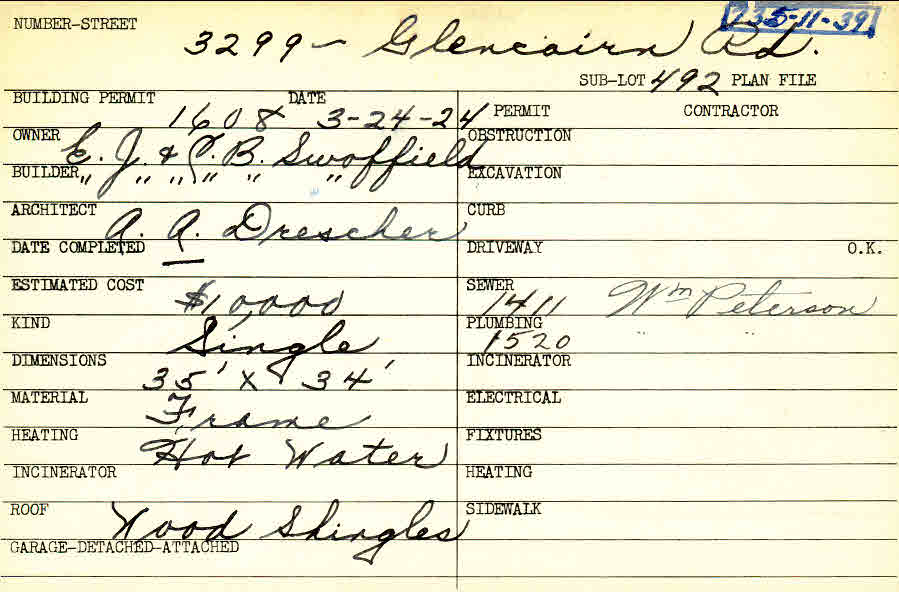 735-11-39
NUMBER-STREET 3299- Glencairn Rd.
SUB-LOT 492 PLAN FILE
BUILDING PERMIT 1608 DATE 3-24-24
PERMIT CONTRACTOR
OWNER E. J. & P. B. Swoffield
OBSTRUCTION
BUILDER " " " " " "
EXCAVATION
ARCHITECT A. A. Drescher
CURB
DATE COMPLETED
DRIVEWAY O.K.
ESTIMATED COST $10,000
SEWER 1411 Wm Peterson
KIND Single
PLUMBING 1520 " "
DIMENSIONS 35' x 34'
INCINERATOR
MATERIAL Frame
ELECTRICAL
HEATING Hot Water
FIXTURES
INCINERATOR
HEATING
ROOF Wood Shingles
SIDEWALK
GARAGE-DETACHED-ATTACHED